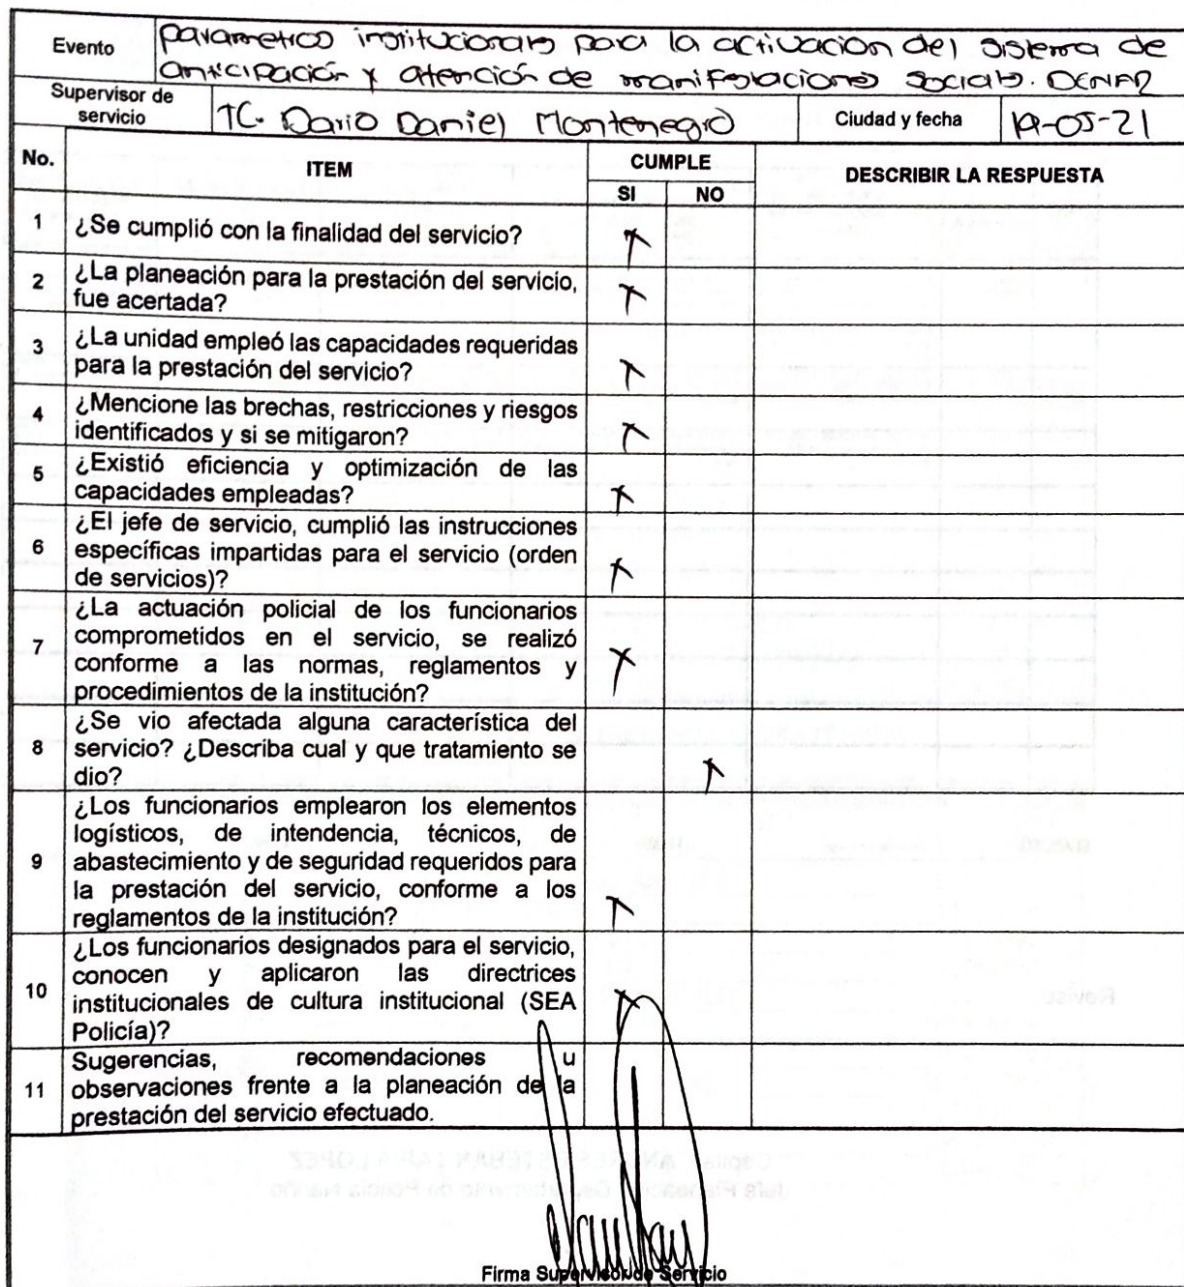 Evento
parametros institucionales para la activación del sistema de
anticipación y atención de manifestaciones sociales. DENAR
Supervisor de
servicio
TC. Dario Daniel Montenegro
Ciudad y fecha
19-05-21
No.
ITEM
CUMPLE
SI
NO
DESCRIBIR LA RESPUESTA
1
¿Se cumplió con la finalidad del servicio?
X
2
¿La planeación para la prestación del servicio,
fue acertada?
X
3
¿La unidad empleó las capacidades requeridas
para la prestación del servicio?
X
4
¿Mencione las brechas, restricciones y riesgos
identificados y si se mitigaron?
X
5
¿Existió eficiencia y optimización de las
capacidades empleadas?
X
6
¿El jefe de servicio, cumplió las instrucciones
específicas impartidas para el servicio (orden
de servicios)?
X
7
¿La actuación policial de los funcionarios
comprometidos en el servicio, se realizó
conforme a las normas, reglamentos y
procedimientos de la institución?
X
8
¿Se vio afectada alguna característica del
servicio? ¿Describa cual y que tratamiento se
dio?
X
9
¿Los funcionarios emplearon los elementos
logísticos, de intendencia, técnicos, de
abastecimiento y de seguridad requeridos para
la prestación del servicio, conforme a los
reglamentos de la institución?
X
10
¿Los funcionarios designados para el servicio,
conocen y aplicaron las directrices
institucionales de cultura institucional (SEA
Policía)?
X
11
Sugerencias, recomendaciones u
observaciones frente a la planeación de la
prestación del servicio efectuado.
Firma Supervisor de Servicio